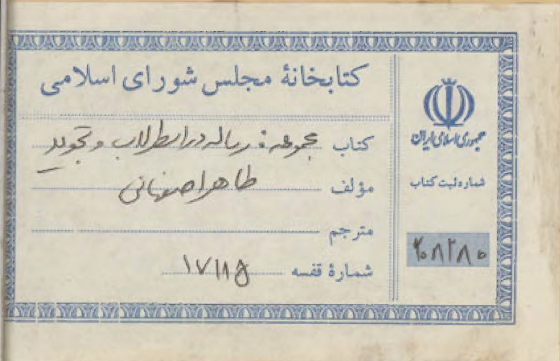 کتابخانهٔ مجلس شورای اسلامی
کتاب مجموعه: رساله در اسطرلاب و تجوید
مؤلف طاهر اصفهانی
مترجم
شمارهٔ قفسه ۱۷۱۱۵
جمهوری اسلامی ایران
شماره ثبت کتاب
۲۰۸۲۸۰